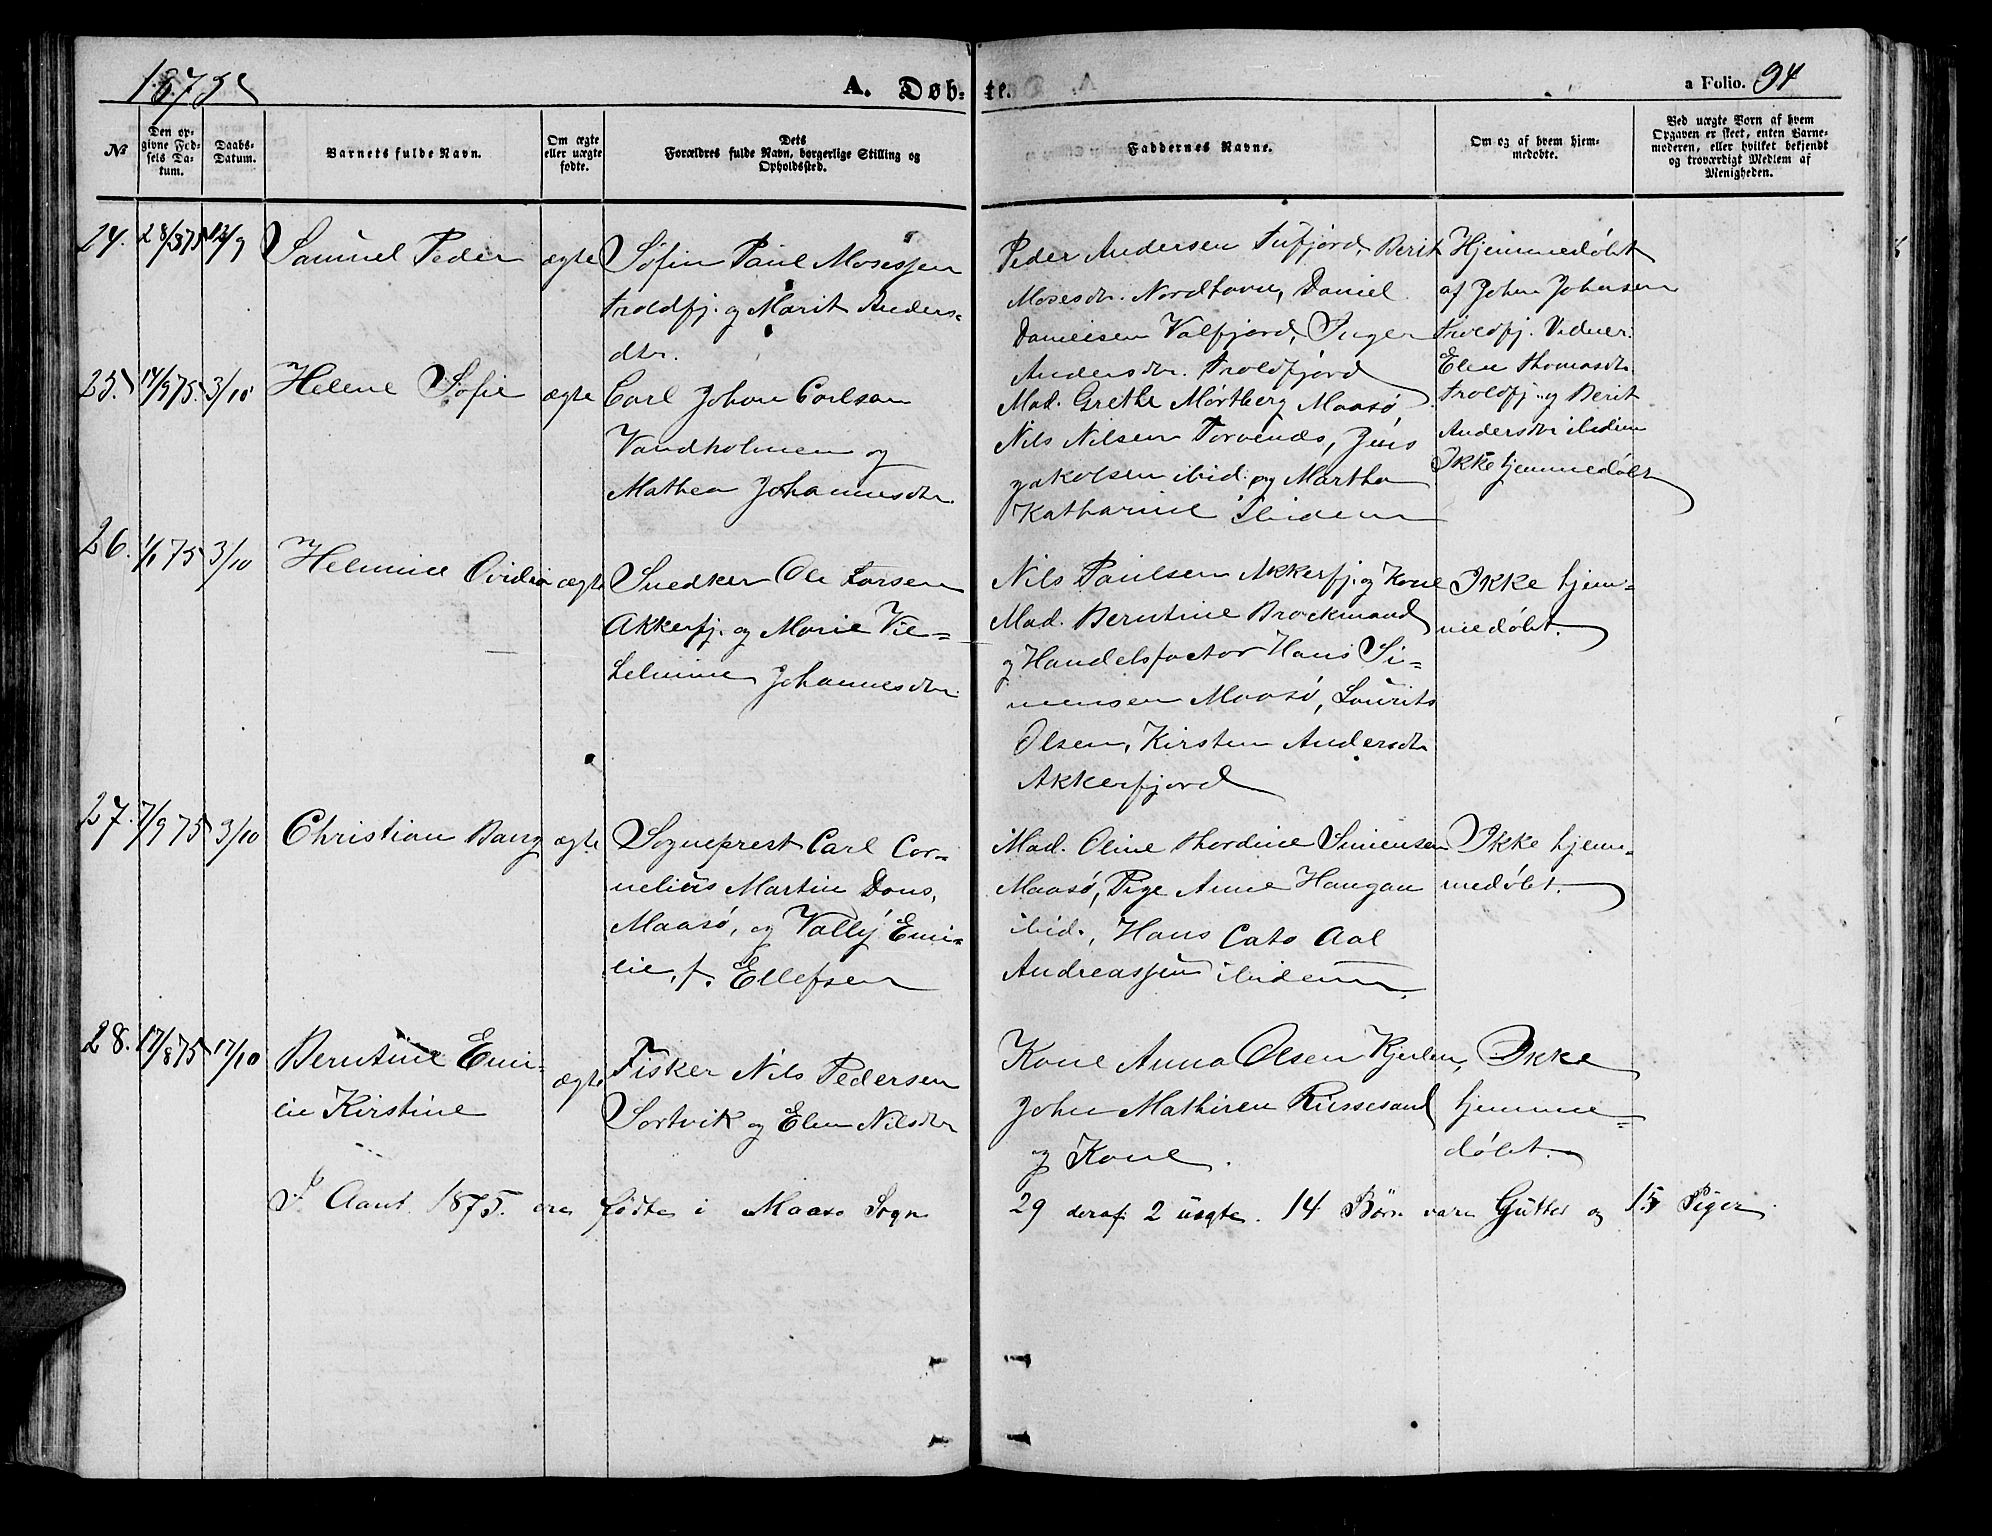 1875
A. Døb-te.
a Folio. 94
№
Den op-
givne Fød-
sels Da-
tum.
Daabs-
Datum.
Barnets fulde Navn.
Om ægte
eller uægte
fødte.
Dets
Forældres fulde Navn, borgerlige Stilling og
Opholdssted.
Faddernes Navne.
Om og af hvem hjem-
medøbte.
Ved uægte Børn af hvem
Opgaven er skeet, enten Barne-
moderen, eller hvilket bekjendt
og troværdigt Medlem af
Menigheden.
24. 28/8 75 12/9 Samuel Peder ægte
Søfin Paul Mosessen
Troldfj. og Marit Anders-
dtr.
Peder Andersen Tufjord, Berit
Mosesdtr. Nordhavn, Daniel
Danielsen Valfjord, Inger
Andersdtr. Troldfjord
Hjemmedøbt
af Johan Johnsen
Troldfj. Vidner:
Elen Thomasdtr.
Troldfj. og Berit
Andersdtr ibidem
25. 14/9 75. 3/10 Helene Sofie ægte
Carl Johan Carlsen
Vandholmen og
Mathea Johannesdtr.
Mad. Grethe Mørtberg Maasø,
Nils Nilsen Torvenæs, Jens
Jakobsen ibid. og Martha
Katharine Ibidem
Ikke hjemmedøbt
26. 1/1 75 3/10 Helmine Ovidia ægte
Snedker Ole Larsen
Akkerfj. og Marie Vil-
helmine Johannesdtr.
Nils Paulsen Akkerfj. og Kone
Mad. Berntine Brockmand
og Handelsfactor Hans Si-
mensen Maasø, Laurits
Olsen, Kirsten Andersdtr
Akkerfjord
Ikke hjem-
medøbt.
27. 7/9 75 3/10 Christian Bang ægte
Sogneprest Carl Cor-
nelius Martin Dons,
Maasø, og Vally Emi-
lie, f. Ellefsen
Mad. Oline Thordine Simensen
Maasø, Pige Anne Haugan
ibid., Hans Cato Aal
Andreassen ibidem.
Ikke hjem-
medøbt.
28. 17/8 75 17/10 Berntine Emi-
lie Kirstine
ægte
Fisker Nils Pedersen
Sortvik og Elen Nilsdtr
Kone Anna Olsen Kjerlen,
John Mathisen Russesund
og Kone.
Ikke
hjemme-
døbt.
I Aaret 1875. ere fødte i Maasø Sogn 29 deraf 2 uægte. 14 Børn vare Gutter og 15 Piger.